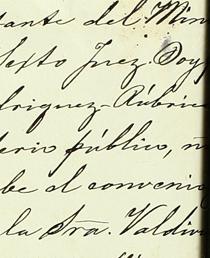 tante del Min
Sexto Juez. Doy
driguez-Rúbrica
terio público, n
be el convenio
la Sra. Valdiv